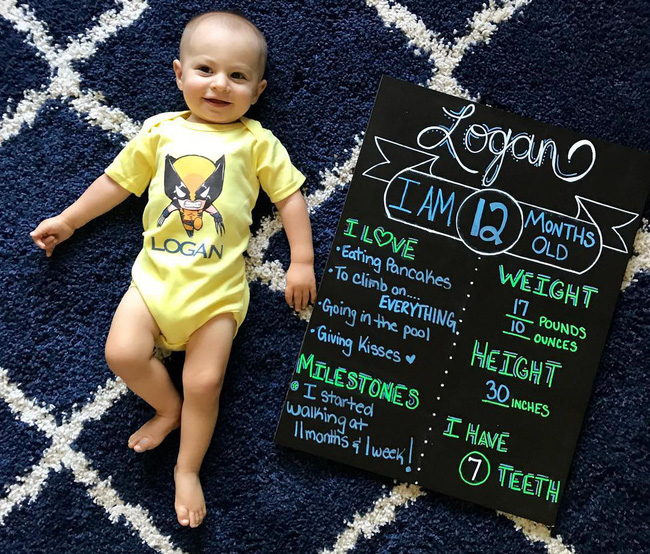 LOGAN
Logan
I AM 12 MONTHS OLD
I L♡VE
• Eating Pancakes
• To climb on....
EVERYTHING
• Going in the pool
• Giving Kisses ♥
MILESTONES
• I started
walking at
11 months & 1 week!
WEIGHT
17 POUNDS
10 OUNCES
HEIGHT
30 INCHES
I HAVE
7 TEETH